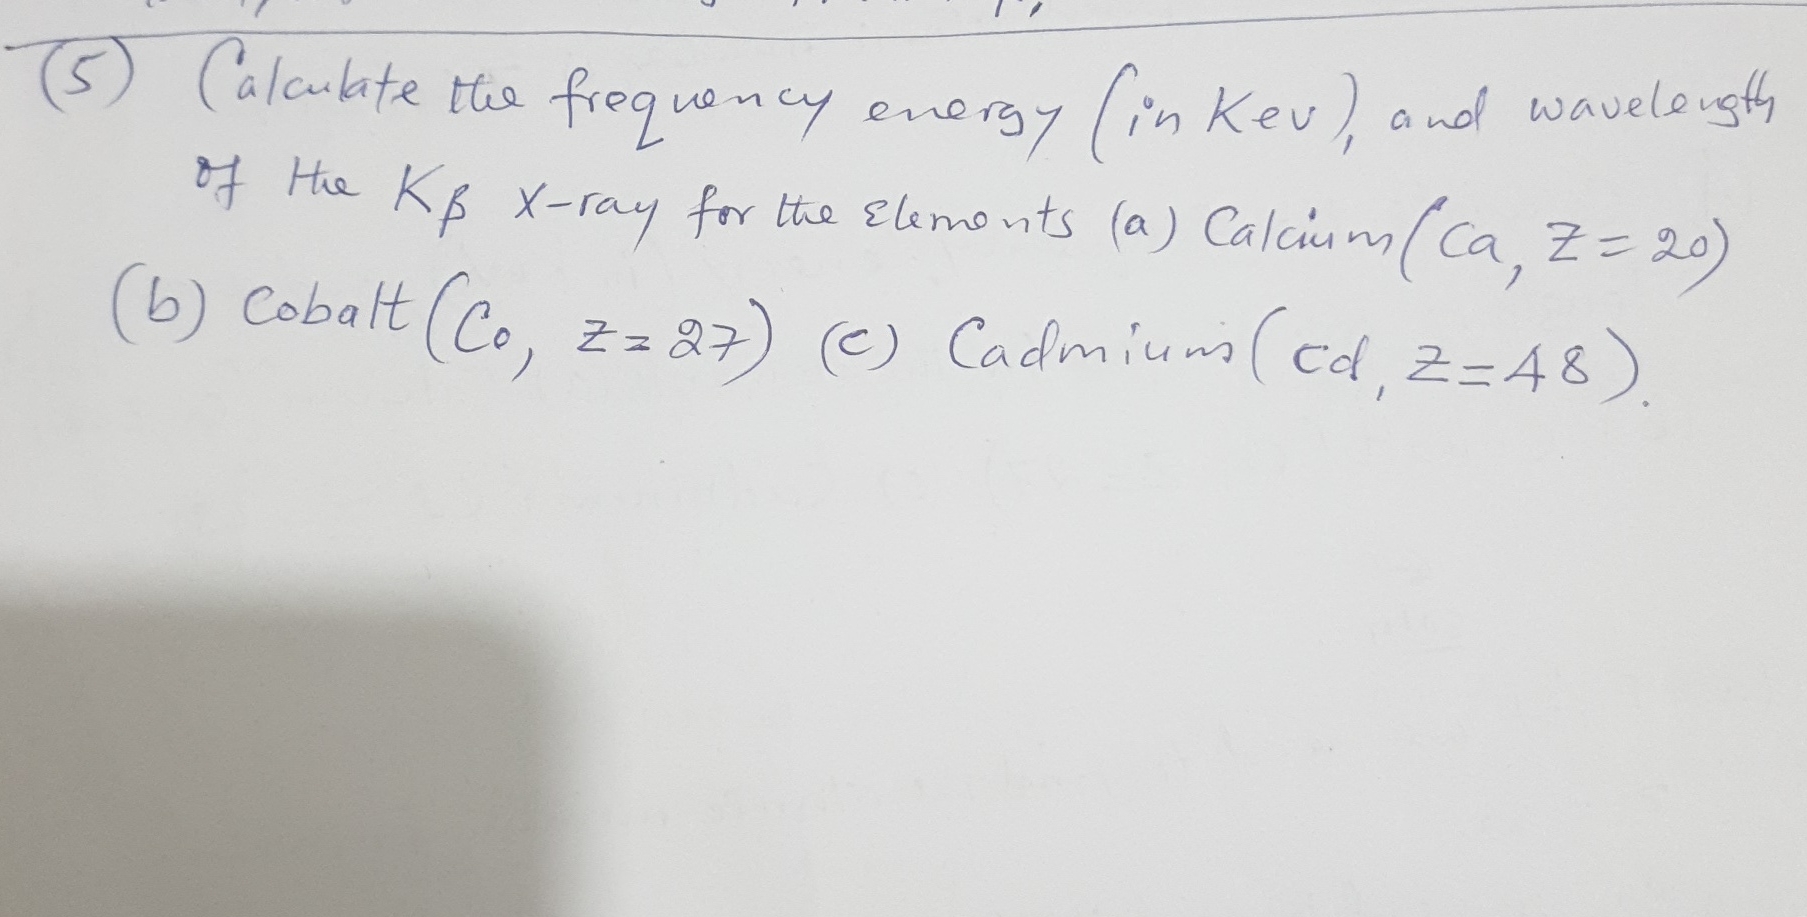 (5) Calculate the frequency energy (in Kev), and wavelength
of the Kβ X-ray for the Elements (a) Calcium (Ca, Z = 20)
(b) Cobalt (Co, Z = 27) (c) Cadmium (cd, Z = 48).